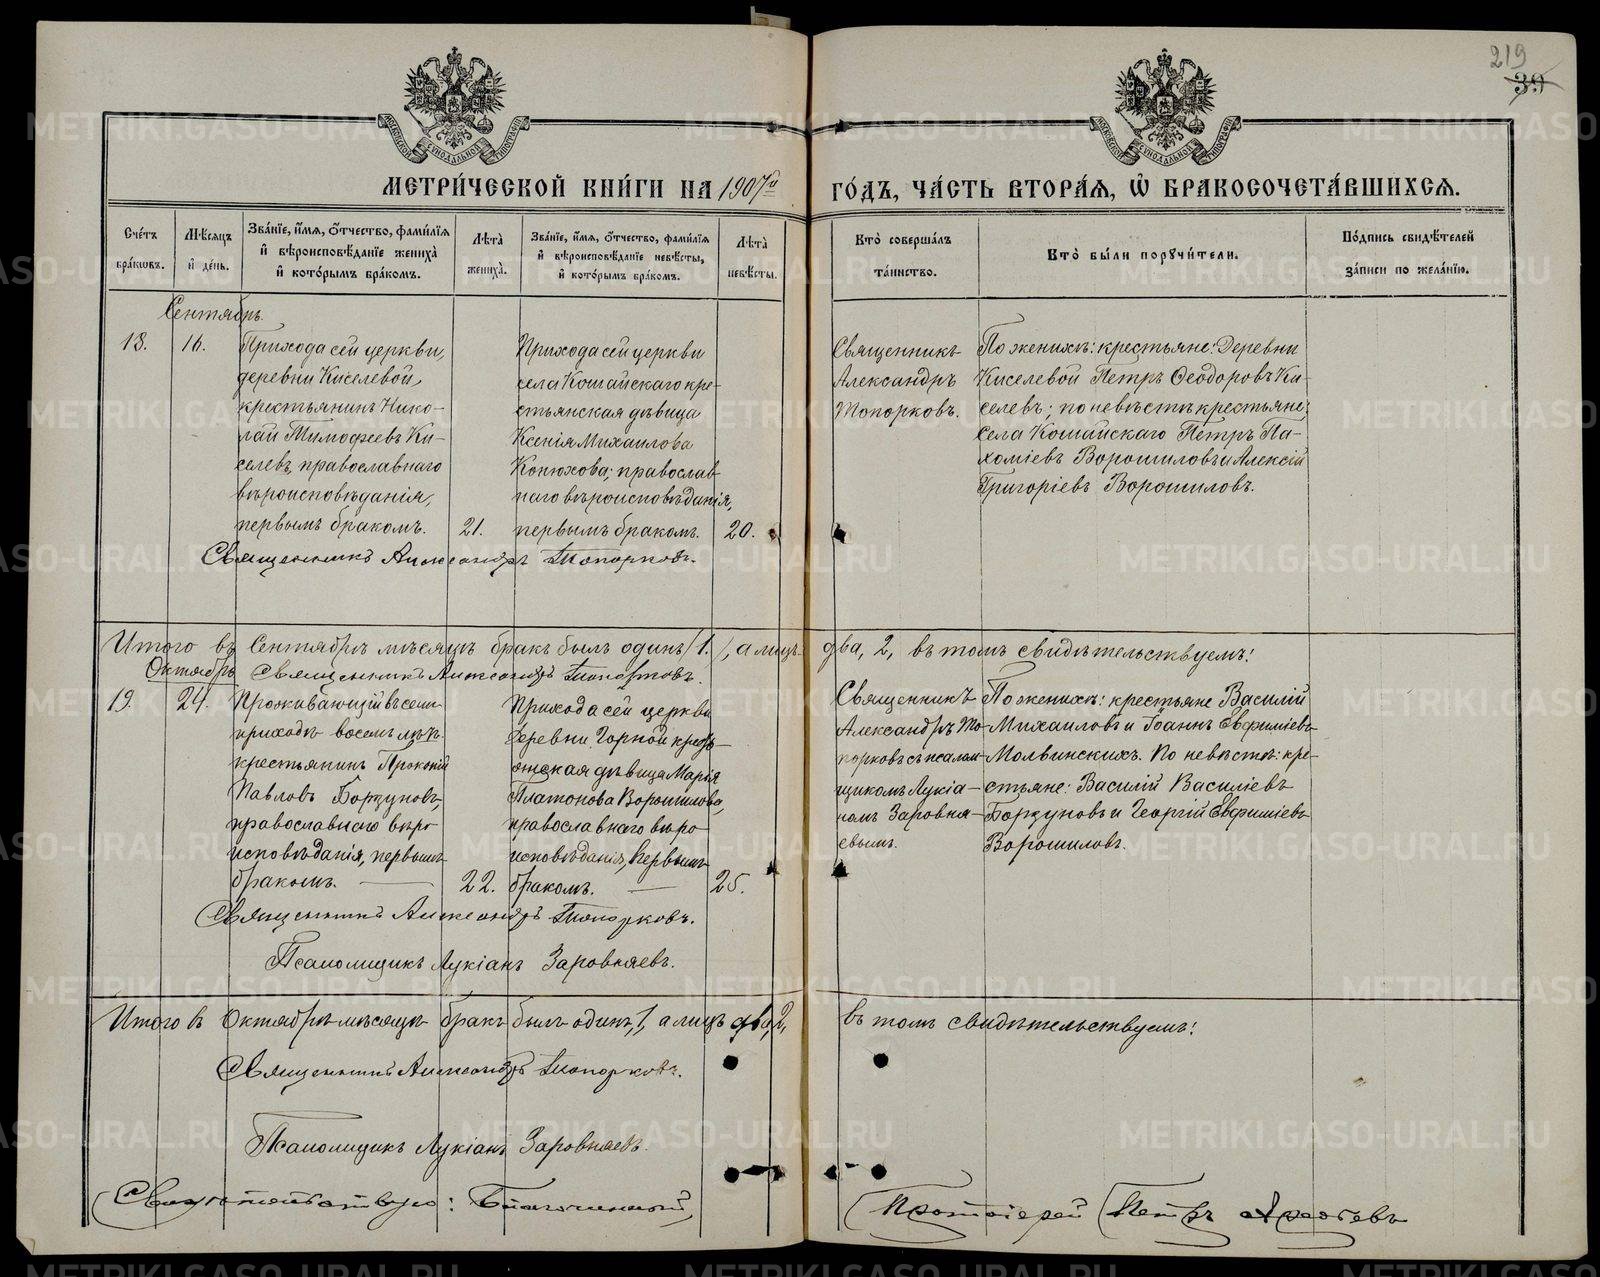 219
39
МЕТРИ́ЧЕСКОЙ КНИ́ГИ НА 1907й ГО́ДЪ, ЧА́СТЬ ВТОРА́Я, Ѡ҆ БРАКОСОЧЕТА́ВШИХСЯ.
Сче́тъ бра́ковъ.
Мѣ́сяцъ и҆ де́нь.
Зва́нїе, и҆́мя, ѻ҆́тчество, фами́лїя и҆ вѣроисповѣ́данїе жениха̀ и҆ кото́рымъ бра́комъ.
Лѣ́та жениха̀.
Зва́нїе, и҆́мя, ѻ҆́тчество, фами́лїя и҆ вѣроисповѣ́данїе невѣ́сты, и҆ кото́рымъ бра́комъ.
Лѣ́та невѣ́сты.
Кто̀ соверша́лъ та́инство.
Кто̀ бы́ли порꙋчи́тели.
По́дпись свидѣ́телей за́писи по жела́нїю.
Сентябрь.
18.
16.
Прихода сей церкви,
деревни Киселевой,
крестьянинъ Нико-
лай Тимофеевъ Ки-
селевъ, православнаго
вѣроисповѣданія,
первымъ бракомъ.
21.
Прихода сей церкви
села Кошайскаго кре-
стьянская дѣвица
Ксенія Михаилова
Конюхова; православ
наго вѣроисповѣданія,
первымъ бракомъ.
20.
Священникъ
Александръ
Топорковъ.
По женихѣ: крестьяне: Деревни
Киселевой Петръ Ѳеодоровъ Ки-
селевъ; по невѣстѣ крестьяне:
Села Кошайскаго Петръ Па-
хоміевъ Ворошиловъ и Алексій
Григоріевъ Ворошиловъ.
Священникъ Александръ Топорковъ.
Итого въ Сентябрѣ мѣсяцѣ бракъ былъ одинъ /1./, а лицъ два, 2, въ томъ свидѣтельствуемъ!
Священникъ Александръ Топорковъ.
Октябрь
19.
24.
Проживающій въ семъ
приходѣ восемь лѣтъ
крестьянинъ Прокопій
Павловъ Борзуновъ,
православнаго вѣро
исповѣданія, первымъ
бракомъ.
22.
Прихода сей церкви
деревни Горной кресть-
янская дѣвица Марія
Платонова Ворошилова,
православнаго вѣро
исповѣданія, первымъ
бракомъ.
25.
Священникъ
Александръ То-
порковъ съ псалом-
щикомъ Лукіа-
номъ Заровня-
евымъ.
По женихѣ: крестьяне Василій
Михаиловъ и Іоаннъ Евфиміевъ
Молвинскихъ. По невѣстѣ: кре-
стьяне: Василій Василіевъ
Борзуновъ и Георгій Евфиміевъ
Ворошиловъ.
Священникъ Александръ Топорковъ.
Псаломщикъ Лукіанъ Заровняевъ.
Итого въ Октябрѣ мѣсяцѣ бракъ былъ одинъ, 1, а лицъ два, 2, въ томъ свидѣтельствуемъ!
Священникъ Александръ Топорковъ.
Псаломщикъ Лукіанъ Заровняевъ.
Свидѣтельствую: Благочинный, Протоіерей Петръ
METRIKI.GASO-URAL.RU